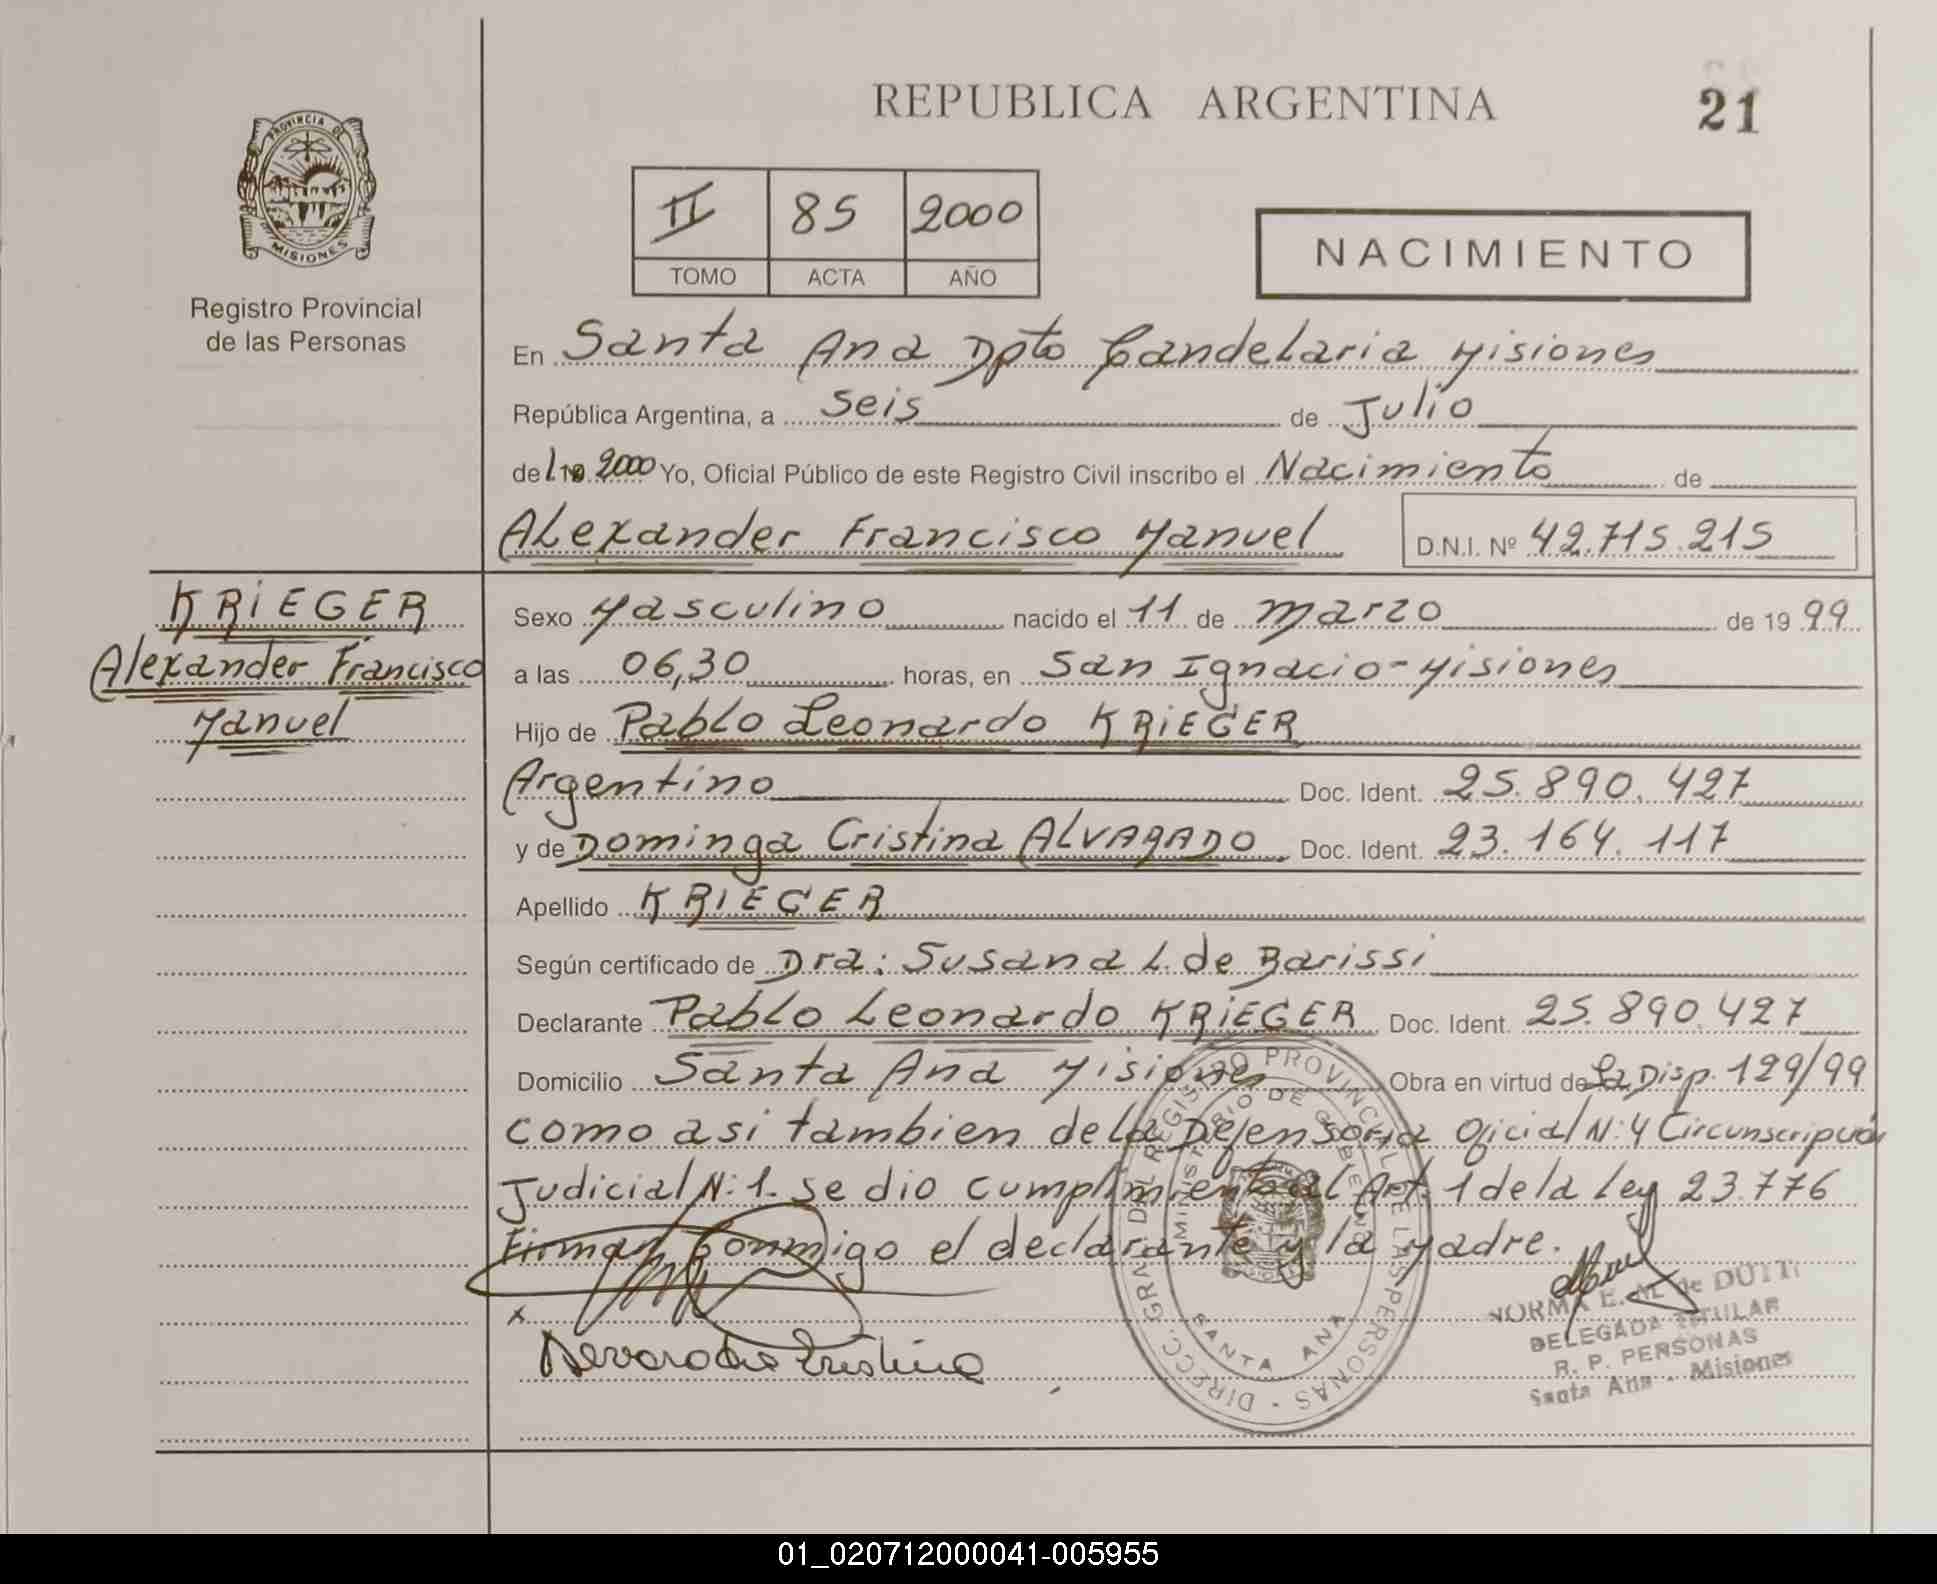 REPUBLICA ARGENTINA
21
PROVINCIA DE
MISIONES
Registro Provincial
de las Personas
II 85 2000
TOMO ACTA AÑO
NACIMIENTO
En Santa Ana Dpto Candelaria Misiones
República Argentina, a seis de Julio
del 19 2000 Yo, Oficial Público de este Registro Civil inscribo el Nacimiento de
Alexander Francisco Manuel D.N.I. Nº 42.715.215
KRIEGER
Alexander Francisco
Manuel
Sexo Masculino nacido el 11 de Marzo de 1999
a las 06,30 horas, en San Ignacio - Misiones
Hijo de Pablo Leonardo KRIEGER
Argentino Doc. Ident. 25.890.427
y de Dominga Cristina ALVARADO Doc. Ident. 23.164.117
Apellido KRIEGER
Según certificado de Dra: Susana L. de Barissi
Declarante Pablo Leonardo KRIEGER Doc. Ident. 25.890.427
Domicilio Santa Ana Misiones Obra en virtud de La Disp. 129/99
como asi tambien de la Defensoria Oficial N:4 Circunscripción
Judicial N:1. se dio cumplimiento al Art. 1 de la Ley 23.776
Firman Conmigo el declarante y la Madre.
x
Cristina
DIRECC. GRAL. DEL REGISTRO PROVINCIAL DE LAS PERSONAS
MINISTERIO DE GOBIERNO
SANTA ANA
NORMA E. de DUTTI
DELEGADA TITULAR
R. P. PERSONAS
Santa Ana - Misiones
01_020712000041-005955